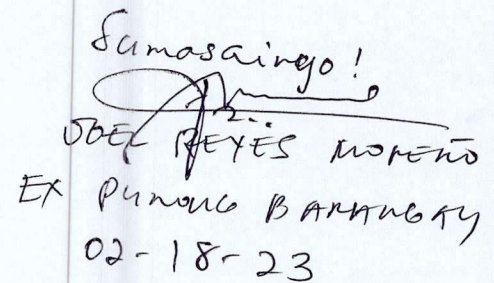 Sumasainyo!
JOEL REYES MOREÑO
EX PUNONG BARANGAY
02-18-23